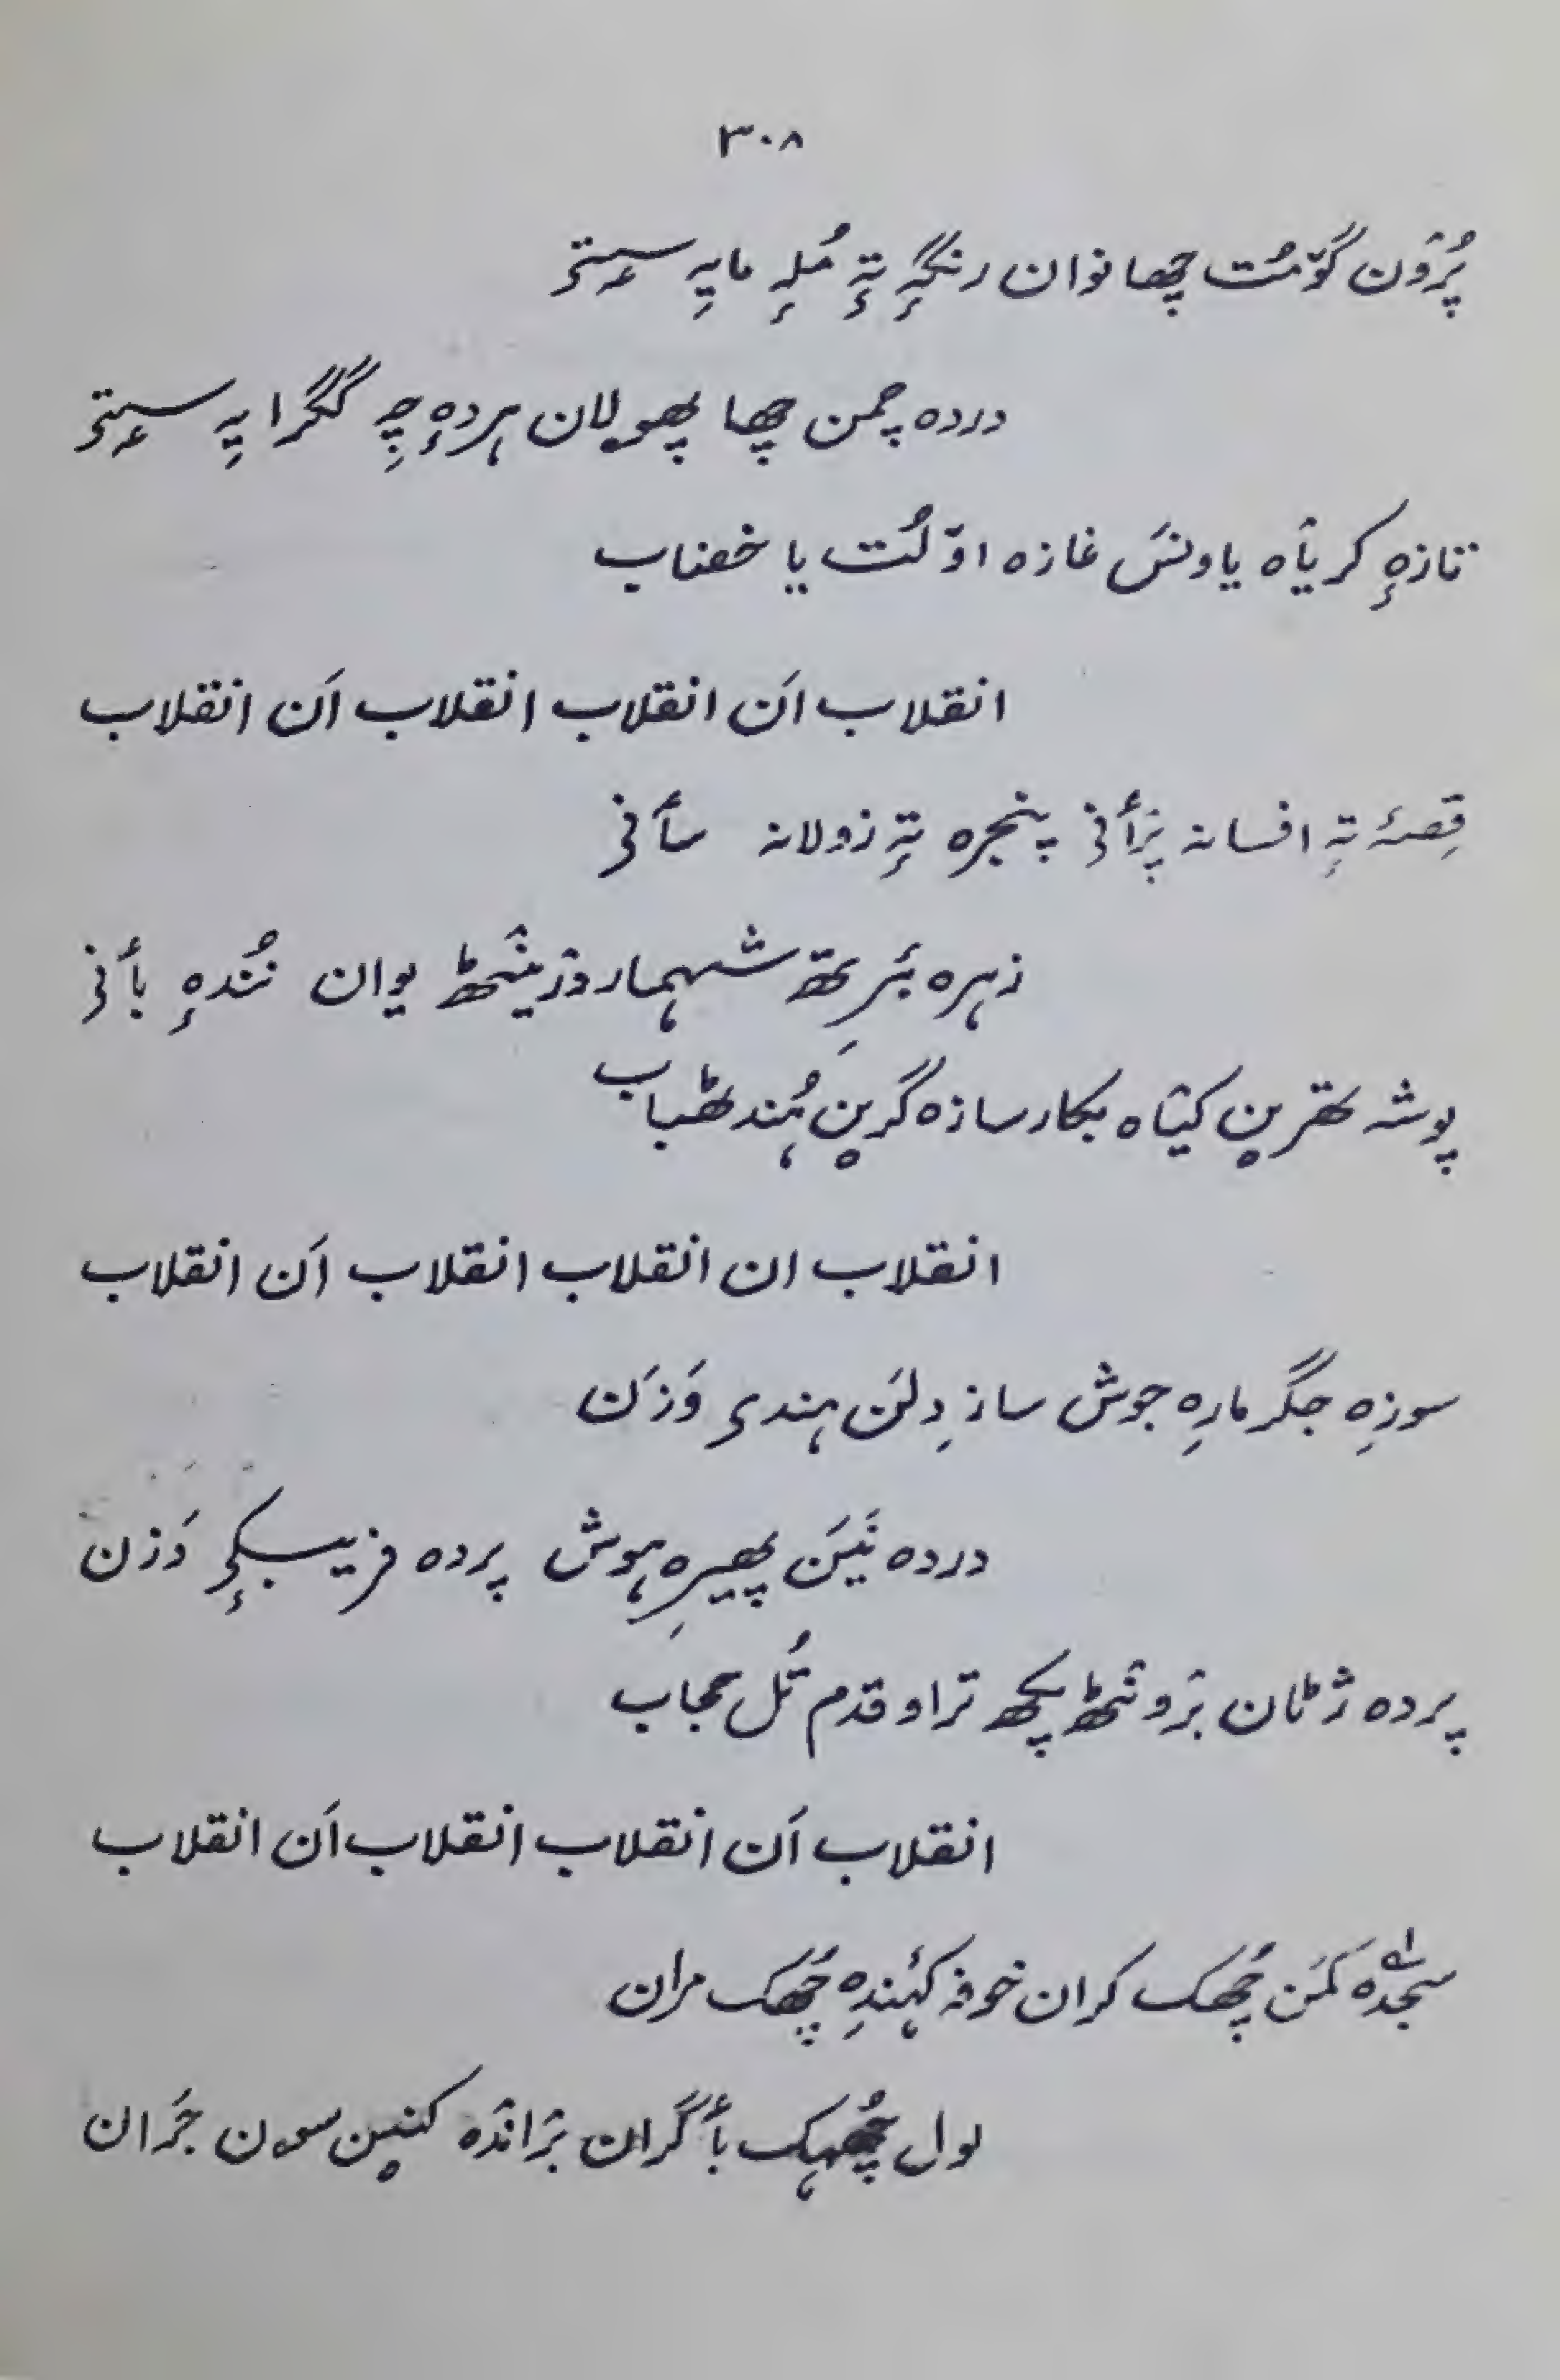 ۳۰۸
پُرٚوٚن گوٚمُت چھا نوان رنگہٕ تہٕ مُلہٕ مایہِ سۭتۍ
دردہ چمن چھا پھولان ہردہٕ چہِ گگرایہِ سۭتۍ
تازہٕ کریٲہ یاونَس غازہ اوٚلُت یا خضاب
انقلاب اَن انقلاب انقلاب اَن انقلاب
قِصہٕ تہٕ افسانہ پرٛأنی پنجرہ تہٕ زولانہ سأنی
زہرہ بٔرِتھ شہمار وۯینٛٹھ یوان نُندہٕ بأنی
پوشہ تھرین کیٛاہ بکار سازہ گرین ہُند ٹھباب
انقلاب ان انقلاب انقلاب اَن انقلاب
سوزِہ جگر مارِہ جوش ساز دِلَن ہندۍ وَزَن
دردہ نَیَن پھیرِہ ہوش پردہ فریبکۍ دَزن
پردہ ژٹان برٛونٛٹھ پکھ تراو قدم تُل حجاب
انقلاب اَن انقلاب انقلاب اَن انقلاب
سجدٔہ کمَن چُھک کران خوفہ کٔہندِہ چُھک مران
لول چُھہک بأگران برٛاندٔہ کنین سون جَران